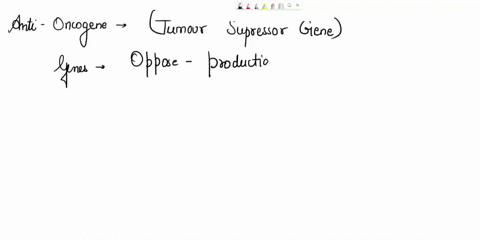 Anti-Oncogene → (Tumour Supressor Gene)
Genes → Oppose - productio